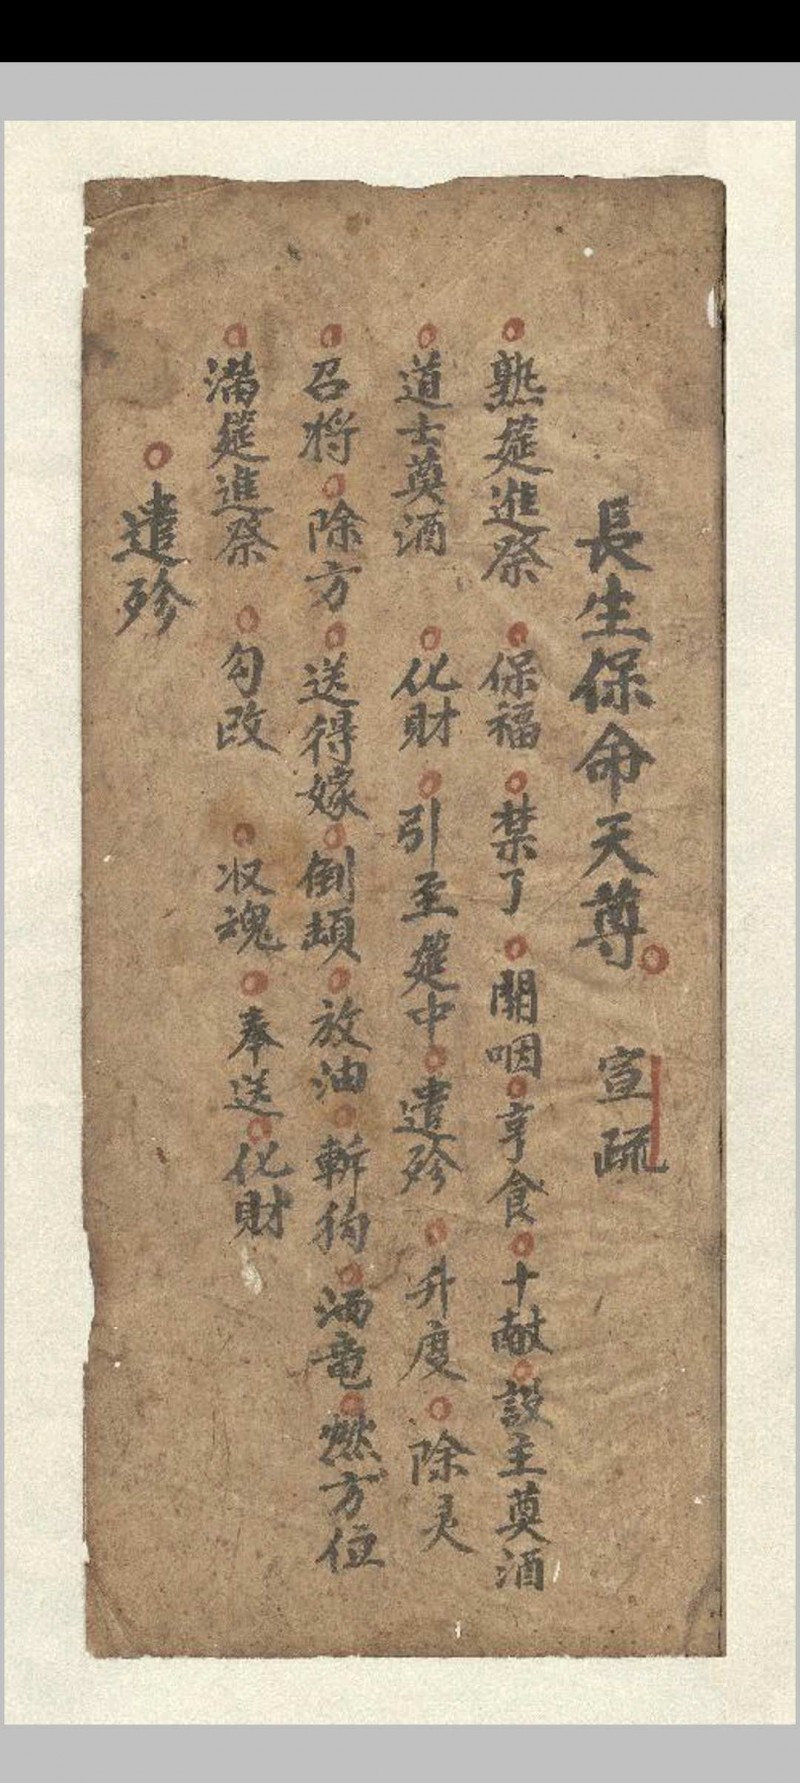 長生保命天尊○ 宣疏
○熟筵進祭 ○保福 ○禁了 ○開咽○亨食○十献○設主奠酒
○道士奠酒 ○化財 ○引至筵中○遣殄 ○升度 ○除灵
○召将○除方○送得嫁○倒頡○放油○斬狗○洒竜○燃方位
○满筵進祭 ○勾改 ○収魂○奉送○化財
○遣殄